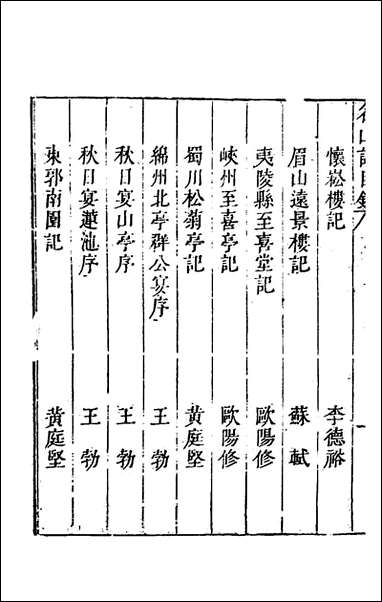 名山記目錄
懷崧樓記 李德裕
眉山遠景樓記 蘇軾
夷陵縣至喜堂記 歐陽修
峽州至喜亭記 歐陽修
蜀川松菊亭記 黃庭堅
綿州北亭群公宴序 王勃
秋日宴山亭序 王勃
秋日宴𨗿池序 王勃
東郭南園記 黃庭堅